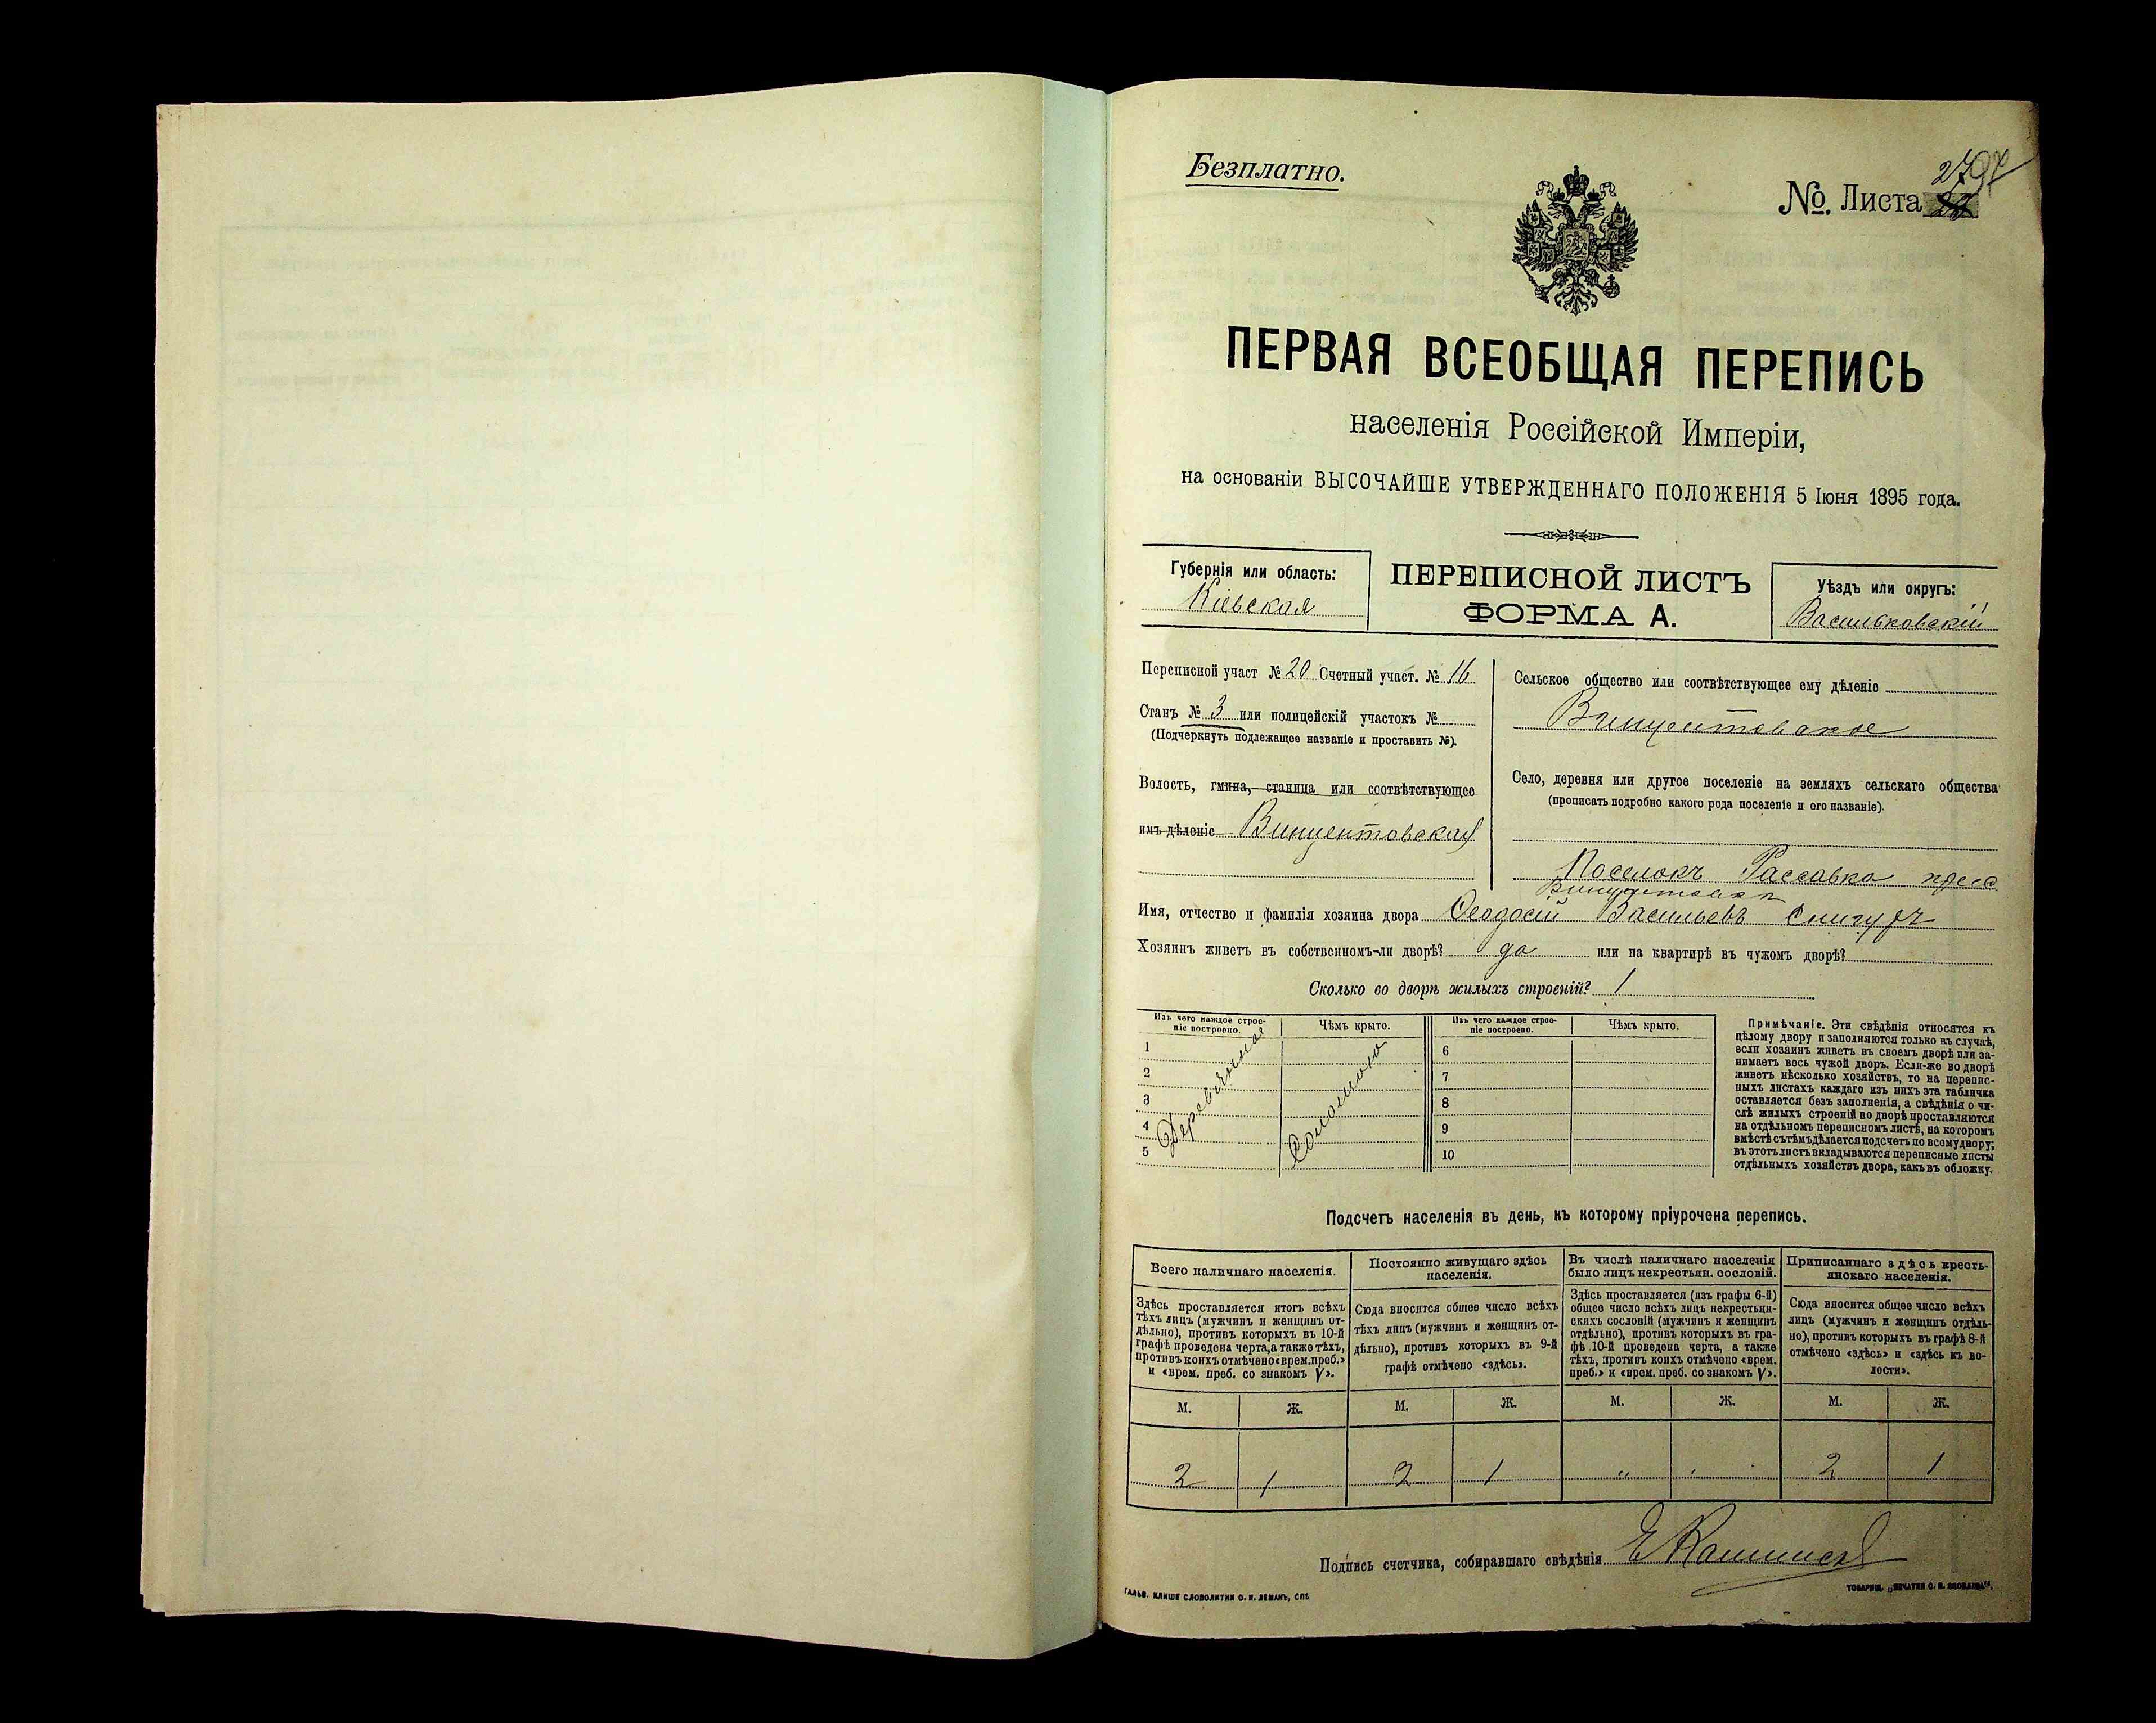 Безплатно.
№ Листа
ПЕРВАЯ ВСЕОБЩАЯ ПЕРЕПИСЬ
населенія Россійской Имперіи,
на основаніи ВЫСОЧАЙШЕ УТВЕРЖДЕННАГО ПОЛОЖЕНІЯ 5 Іюня 1895 года.
Губернія или область:
Кіевская
ПЕРЕПИСНОЙ ЛИСТЪ
ФОРМА А.
Уѣздъ или округъ:
Васильковскій
Переписной участ № 20 Счетный участ. № 16
Станъ № 3 или полицейскій участокъ №
(Подчеркнуть подлежащее названіе и проставить №).
Волость, гмина, станица или соотвѣтствующее
имъ дѣленіе Винцентовская
Сельское общество или соотвѣтствующее ему дѣленіе
Винцентовское
Село, деревня или другое поселеніе на земляхъ сельскаго общества
(прописать подробно какого рода поселеніе и его названіе).
Поселокъ Рассавка
Имя, отчество и фамилія хозяина двора Ѳеодосій Васильевъ Снигуръ
Хозяинъ живетъ въ собственномъ-ли дворѣ? да или на квартирѣ въ чужомъ дворѣ?
Сколько во дворѣ жилыхъ строеній? 1
Изъ чего каждое строе-
ніе построено.
Чѣмъ крыто.
Изъ чего каждое строе-
ніе построено.
Чѣмъ крыто.
1
2
3
4
5
Деревянное
Соломою
6
7
8
9
10
Примѣчаніе. Эти свѣдѣнія относятся къ
цѣлому двору и заполняются только въ случаѣ,
если хозяинъ живетъ въ своемъ дворѣ или за-
нимаетъ весь чужой дворъ. Если-же во дворѣ
живетъ нѣсколько хозяйствъ, то на перепис-
ныхъ листахъ каждаго изъ нихъ эта табличка
оставляется безъ заполненія, а свѣдѣнія о чи-
слѣ жилыхъ строеній во дворѣ проставляются
на отдѣльномъ переписномъ листѣ, на которомъ
вмѣстѣ съ тѣмъ дѣлается подсчетъ по всему двору;
въ этотъ листъ вкладываются переписные листы
отдѣльныхъ хозяйствъ двора, какъ въ обложку.
Подсчетъ населенія въ день, къ которому пріурочена перепись.
Всего наличнаго населенія.
Постоянно живущаго здѣсь
населенія.
Въ числѣ наличнаго населенія
было лицъ некрестьян. сословій.
Приписаннаго здѣсь кресть-
янскаго населенія.
Здѣсь проставляется итогъ всѣхъ
тѣхъ лицъ (мужчинъ и женщинъ от-
дѣльно), противъ которыхъ въ 10-й
графѣ проведена черта, а также тѣхъ,
противъ коихъ отмѣчено «врем. преб.»
и «врем. преб. со знакомъ V».
Сюда вносится общее число всѣхъ
тѣхъ лицъ (мужчинъ и женщинъ от-
дѣльно), противъ которыхъ въ 9-й
графѣ отмѣчено «здѣсь».
Здѣсь проставляется (изъ графы 6-й)
общее число всѣхъ лицъ некрестьян-
скихъ сословій (мужчинъ и женщинъ
отдѣльно), противъ которыхъ въ гра-
фѣ 10-й проведена черта, а также
тѣхъ, противъ коихъ отмѣчено «врем.
преб.» и «врем. преб. со знакомъ V».
Сюда вносится общее число всѣхъ
лицъ (мужчинъ и женщинъ отдѣль-
но), противъ которыхъ въ графѣ 8-й
отмѣчено «здѣсь» и «здѣсь къ во-
лости».
М. Ж. М. Ж. М. Ж. М. Ж.
2 1 2 1 „ „ 2 1
Подпись счетчика, собиравшаго свѣдѣнія
ГАЛЬВ. КЛИШЕ СЛОВОЛИТНИ О. И. ЛЕМАНЪ, СПБ.
ТОВАРИЩ. „ПЕЧАТНЯ С. П. ЯКОВЛЕВА".